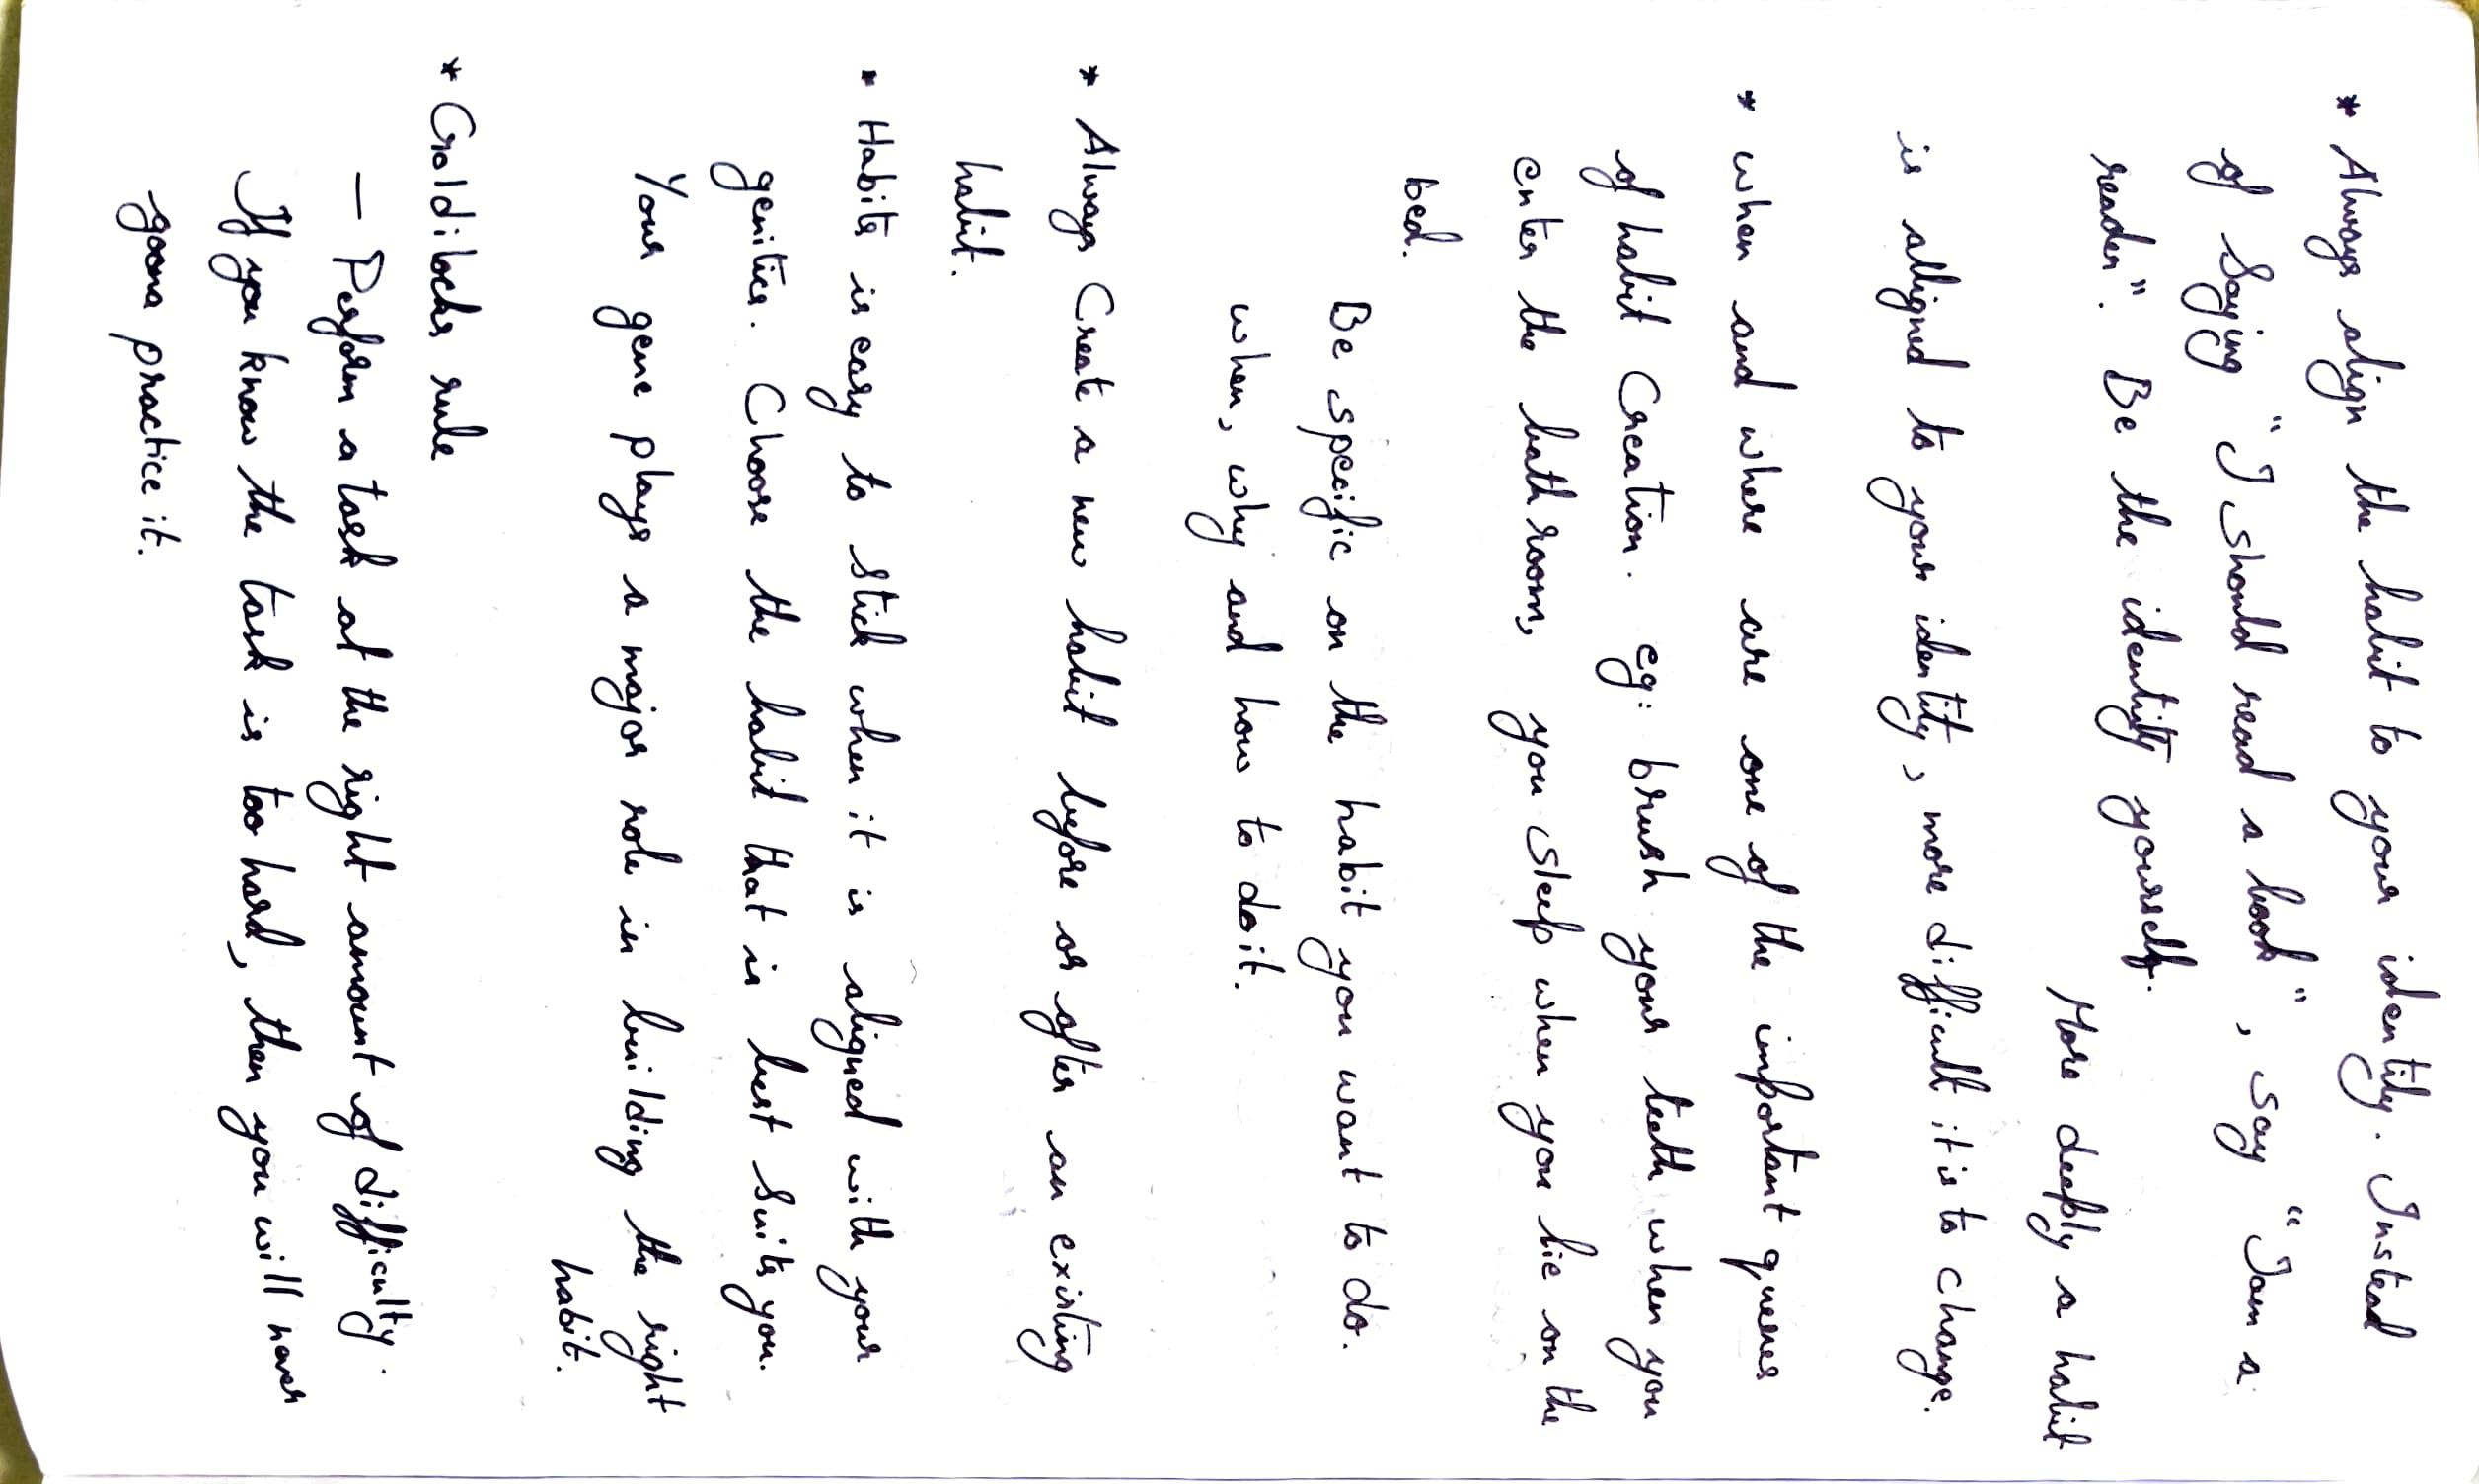 * Always align the habit to your identity. Instead
of Saying "I should read a book", say "I am a
reader". Be the identity yourself.
More deeply a habit
is alligned to your identity, more difficult it is to change.
* when and where are one of the important queues
of habit Creation. eg: brush your teeth when you
enter the bathroom, you sleep when you lie on the
bed.
Be specific on the habit you want to do.
when, why and how to do it.
* Always Create a new habit before or after an existing
habit.
* Habits is easy to stick when it is aligned with your
genitics. Choose the habit that is best Suits you.
Your gene plays a major role in building the right
habit.
* Goldilocks rule
— Perform a task at the right amount of difficulty.
If you know the task is too hard, then you will never
goona practice it.